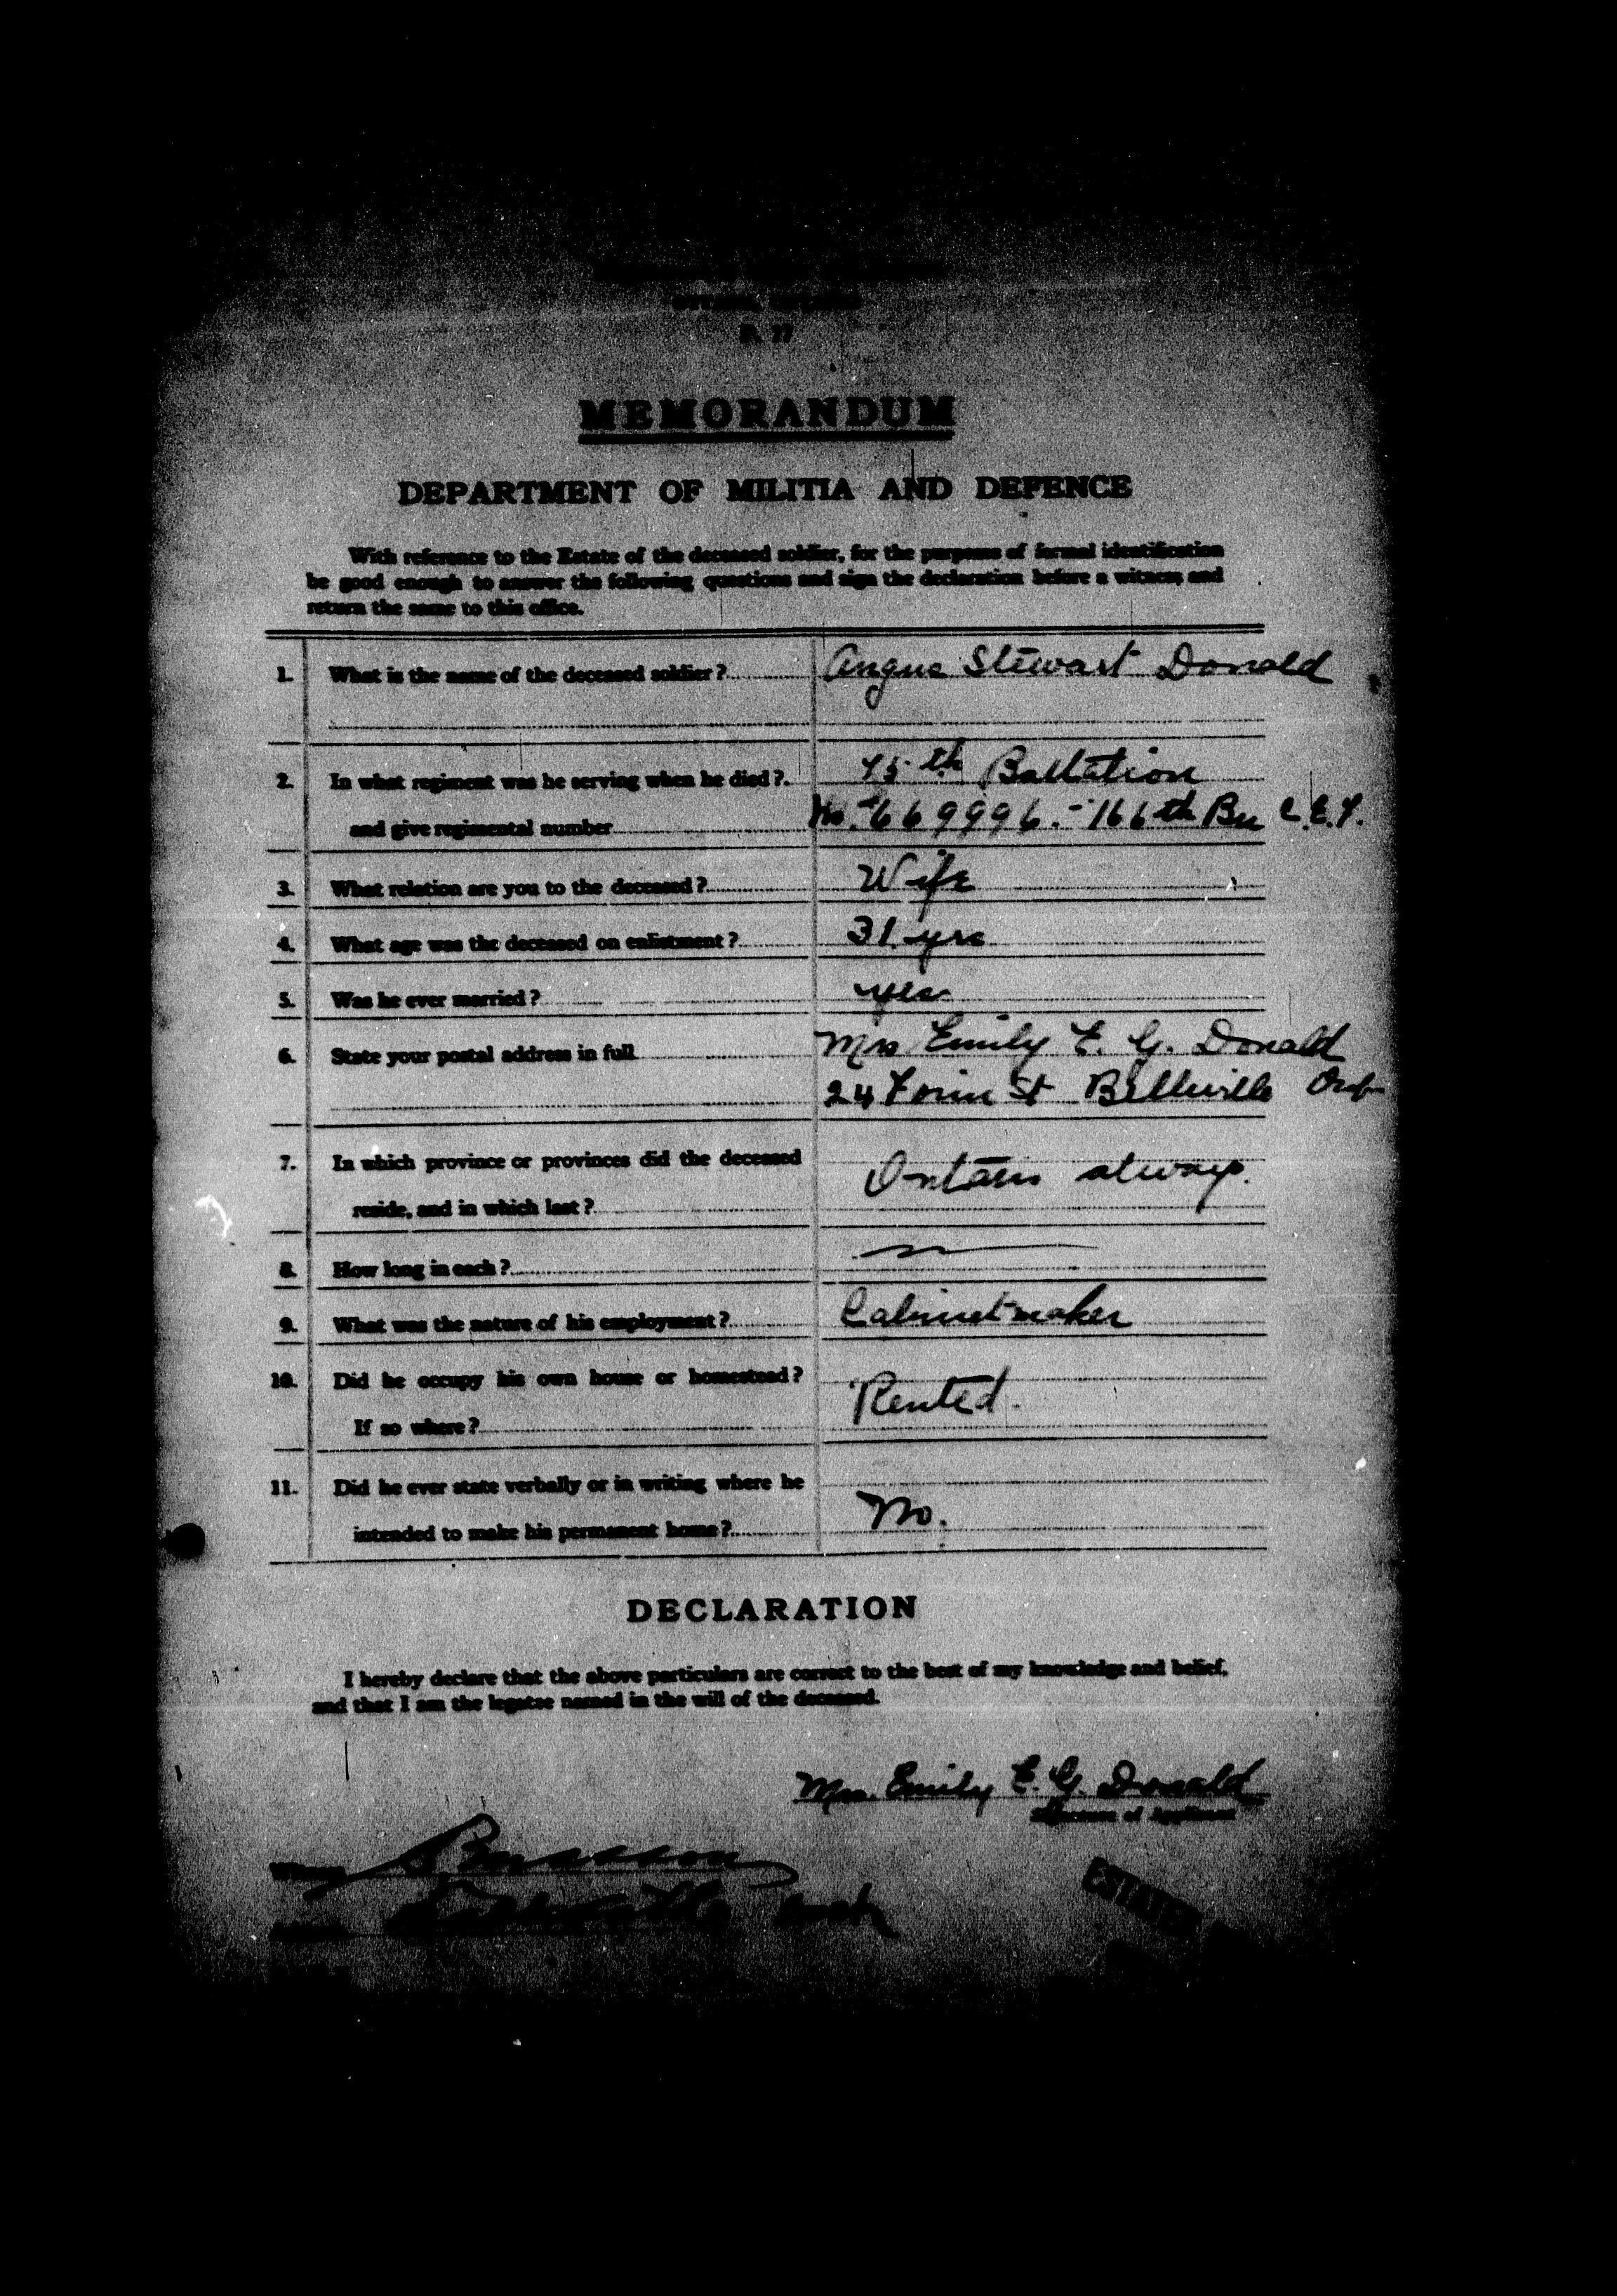 MEMORANDUM
DEPARTMENT OF MILITIA AND DEFENCE
With reference to the Estate of the deceased soldier, for the purposes of formal identification
be good enough to answer the following questions and sign the declaration before a witness and
return the same to this office.
1. What is the name of the deceased soldier? Angus Stewart Donald
2. In what regiment was he serving when he died? 75th Battation
and give regimental number No. 669996. - 166th Bn C.E.F.
3. What relation are you to the deceased? Wife
4. What age was the deceased on enlistment? 31 yrs
5. Was he ever married? yes
6. State your postal address in full Mrs Emily E. G. Donald
24 St Belleville Ont
7. In which province or provinces did the deceased
reside, and in which last? Ontario always.
8. How long in each?
9. What was the nature of his employment? Cabinetmaker
10. Did he occupy his own house or homestead?
If so where? Rented.
11. Did he ever state verbally or in writing where he
intended to make his permanent home? No.
DECLARATION
I hereby declare that the above particulars are correct to the best of my knowledge and belief,
and that I am the legatee named in the will of the deceased.
Mrs. Emily E. G. Donald
Signature of Applicant
Witness
ESTATES